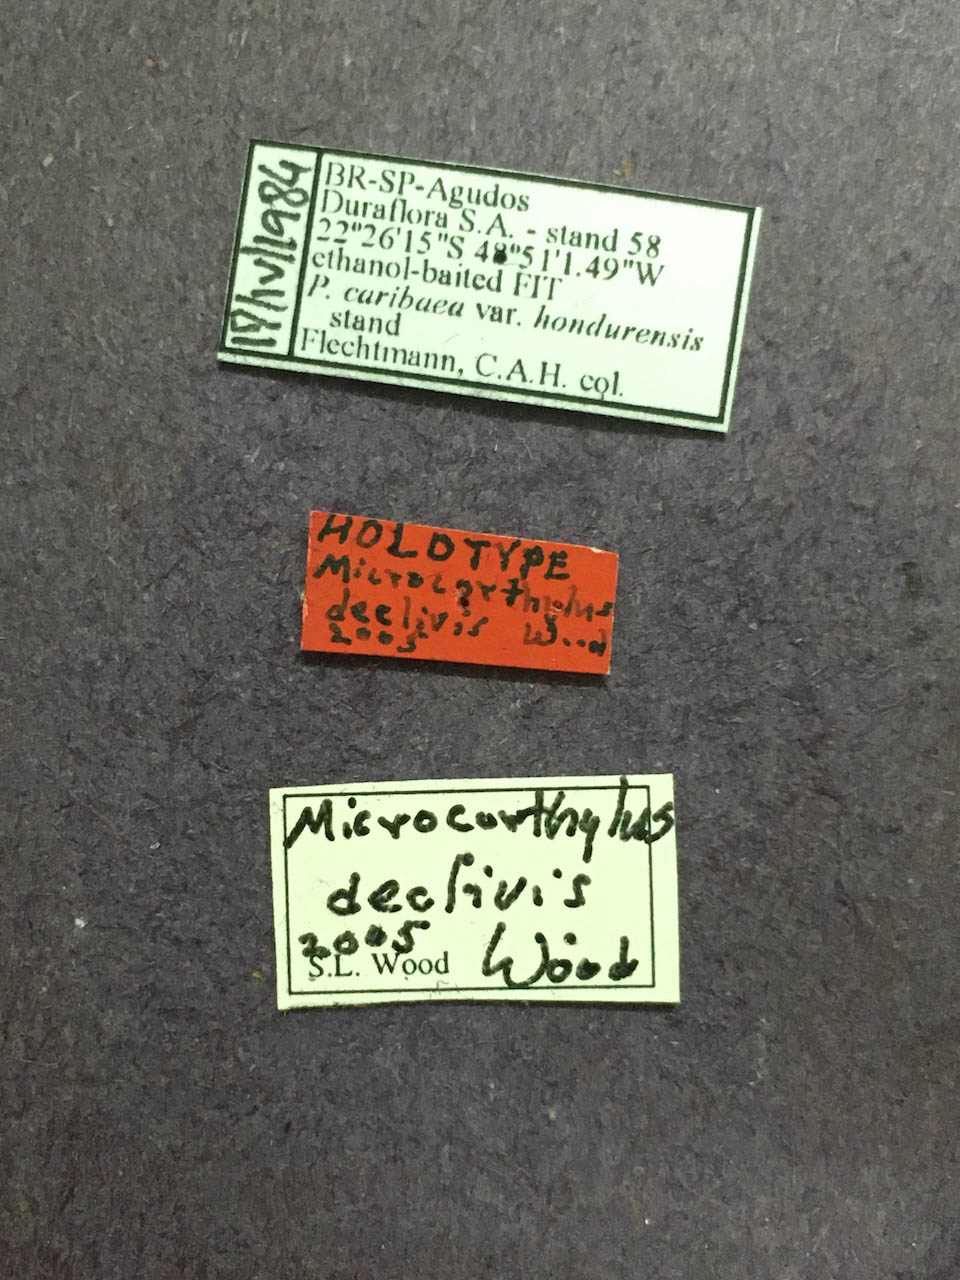 BR-SP-Agudos
Duraflora S.A. - stand 58
22°26'15"S 48°51'1.49"W
ethanol-baited FIT
P. caribaea var. hondurensis
stand
Flechtmann, C.A.H. col.
HOLOTYPE
Microcorthylus
declivis Wood
2005
Microcorthylus
declivis
2005 Wood
S.L. Wood